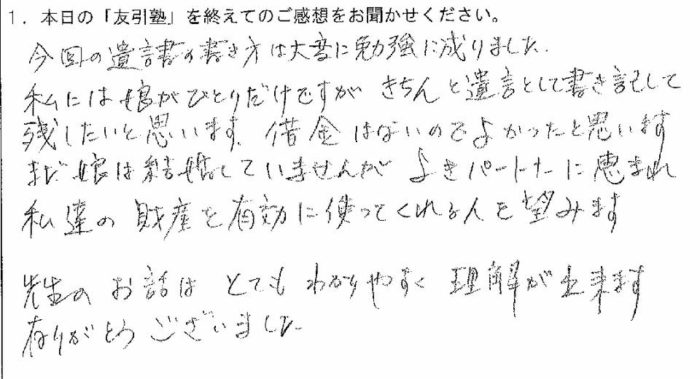 1．本日の「友引塾」を終えてのご感想をお聞かせください。
今回の遺言書の書き方は大変に勉強に成りました.
私には娘がひとりだけですが きちんと遺言として書き記して
残したいと思います. 借金はないのでよかったと思います
まだ娘は結婚していませんが よきパートナーに恵まれ
私達の財産を有効に使ってくれる人を望みます
先生の お話は とても わかりやすく 理解が出来ます
有りがとう ございました.